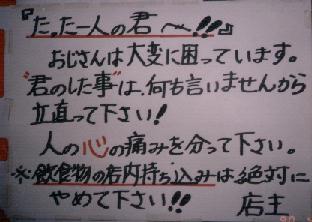 『たった一人の君へ!!』
おじさんは大変に困っています。
"君のした事"は、何も言いませんから
立直って下さい!
人の心の痛みを分って下さい。
※飲食物の店内持ち込みは絶対に
やめて下さい!! 店主